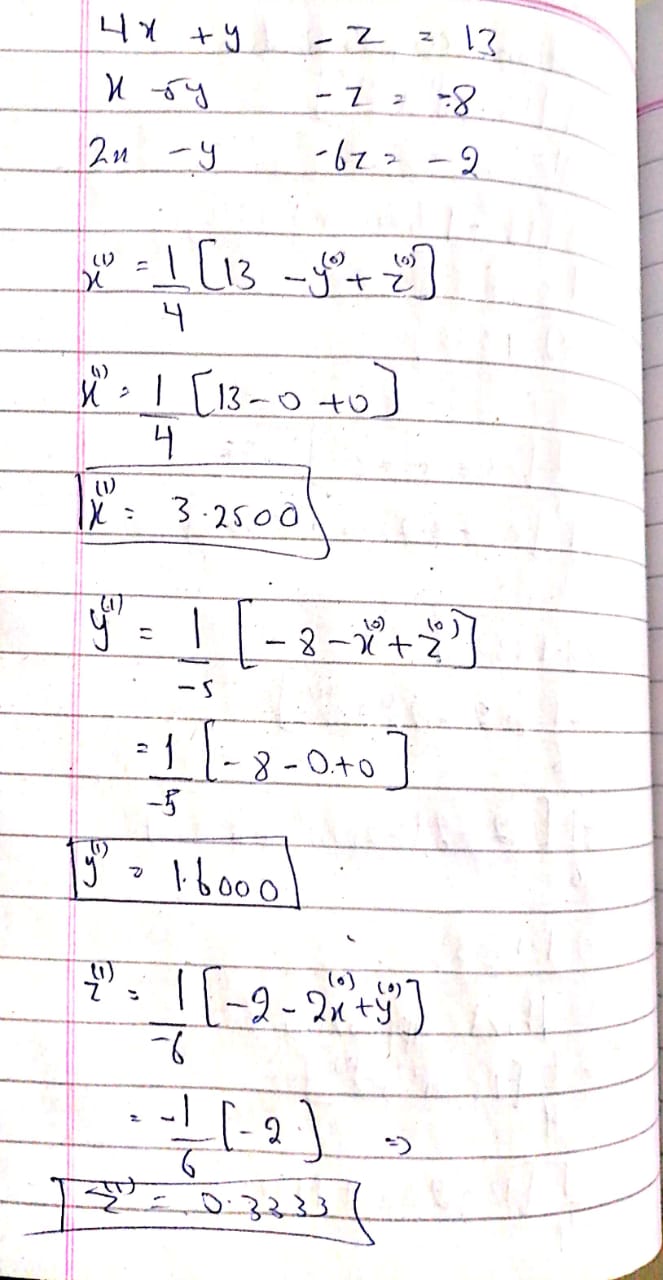 4x + y - z = 13
x - 5y - z = -8
2x - y - 6z = -2
x⁽¹⁾ = 1/4 [13 - y⁽⁰⁾ + z⁽⁰⁾]
x⁽¹⁾ = 1/4 [13 - 0 + 0]
x⁽¹⁾ = 3.2500
y⁽¹⁾ = 1/-5 [-8 - x⁽⁰⁾ + z⁽⁰⁾]
= 1/-5 [-8 - 0 + 0]
y⁽¹⁾ = 1.6000
z⁽¹⁾ = 1/-6 [-2 - 2x⁽⁰⁾ + y⁽⁰⁾]
= -1/6 [-2] ⇒
z⁽¹⁾ = 0.3333